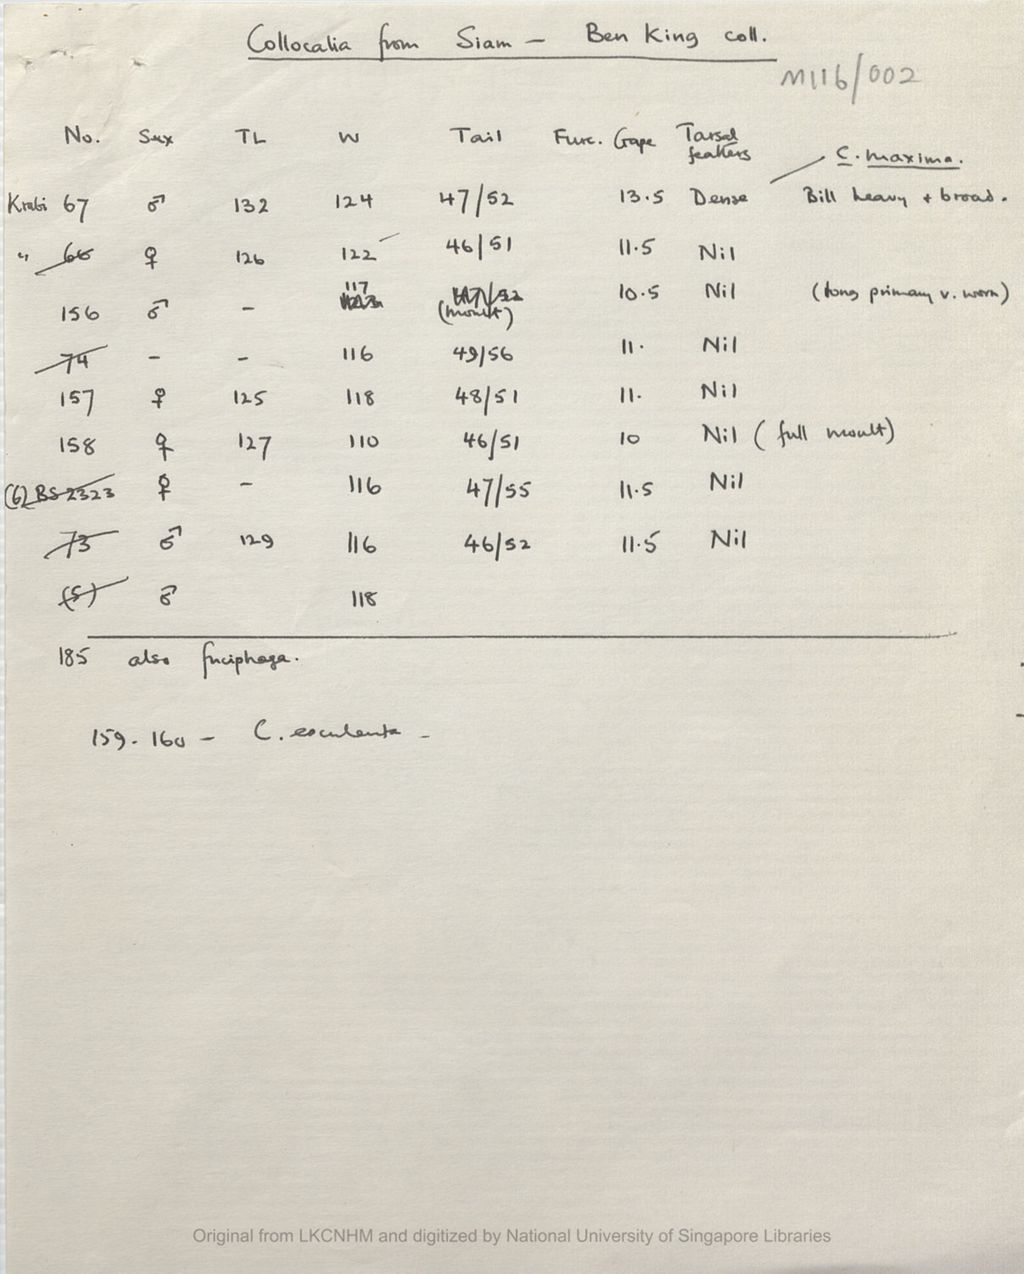 Collocalia from Siam – Ben King coll.
M116/002
No. Sex TL W Tail Furc. Gape Tarsal feathers
C. maxima.
Krabi 67 ♂ 132 124 47/52 13.5 Dense Bill heavy + broad.
" 66 ♀ 126 122 46/51 11.5 Nil
156 ♂ - 117 (moult) 10.5 Nil (long primary v. worn)
74 - - 116 49/56 11. Nil
157 ♀ 125 118 48/51 11. Nil
158 ♀ 127 110 46/51 10 Nil (full moult)
(6) BS-2323 ♀ - 116 47/55 11.5 Nil
73 ♂ 129 116 46/52 11.5 Nil
(5) ♂ 118
185 also fuciphaga.
159-160 – C. esculenta –
Original from LKCNHM and digitized by National University of Singapore Libraries